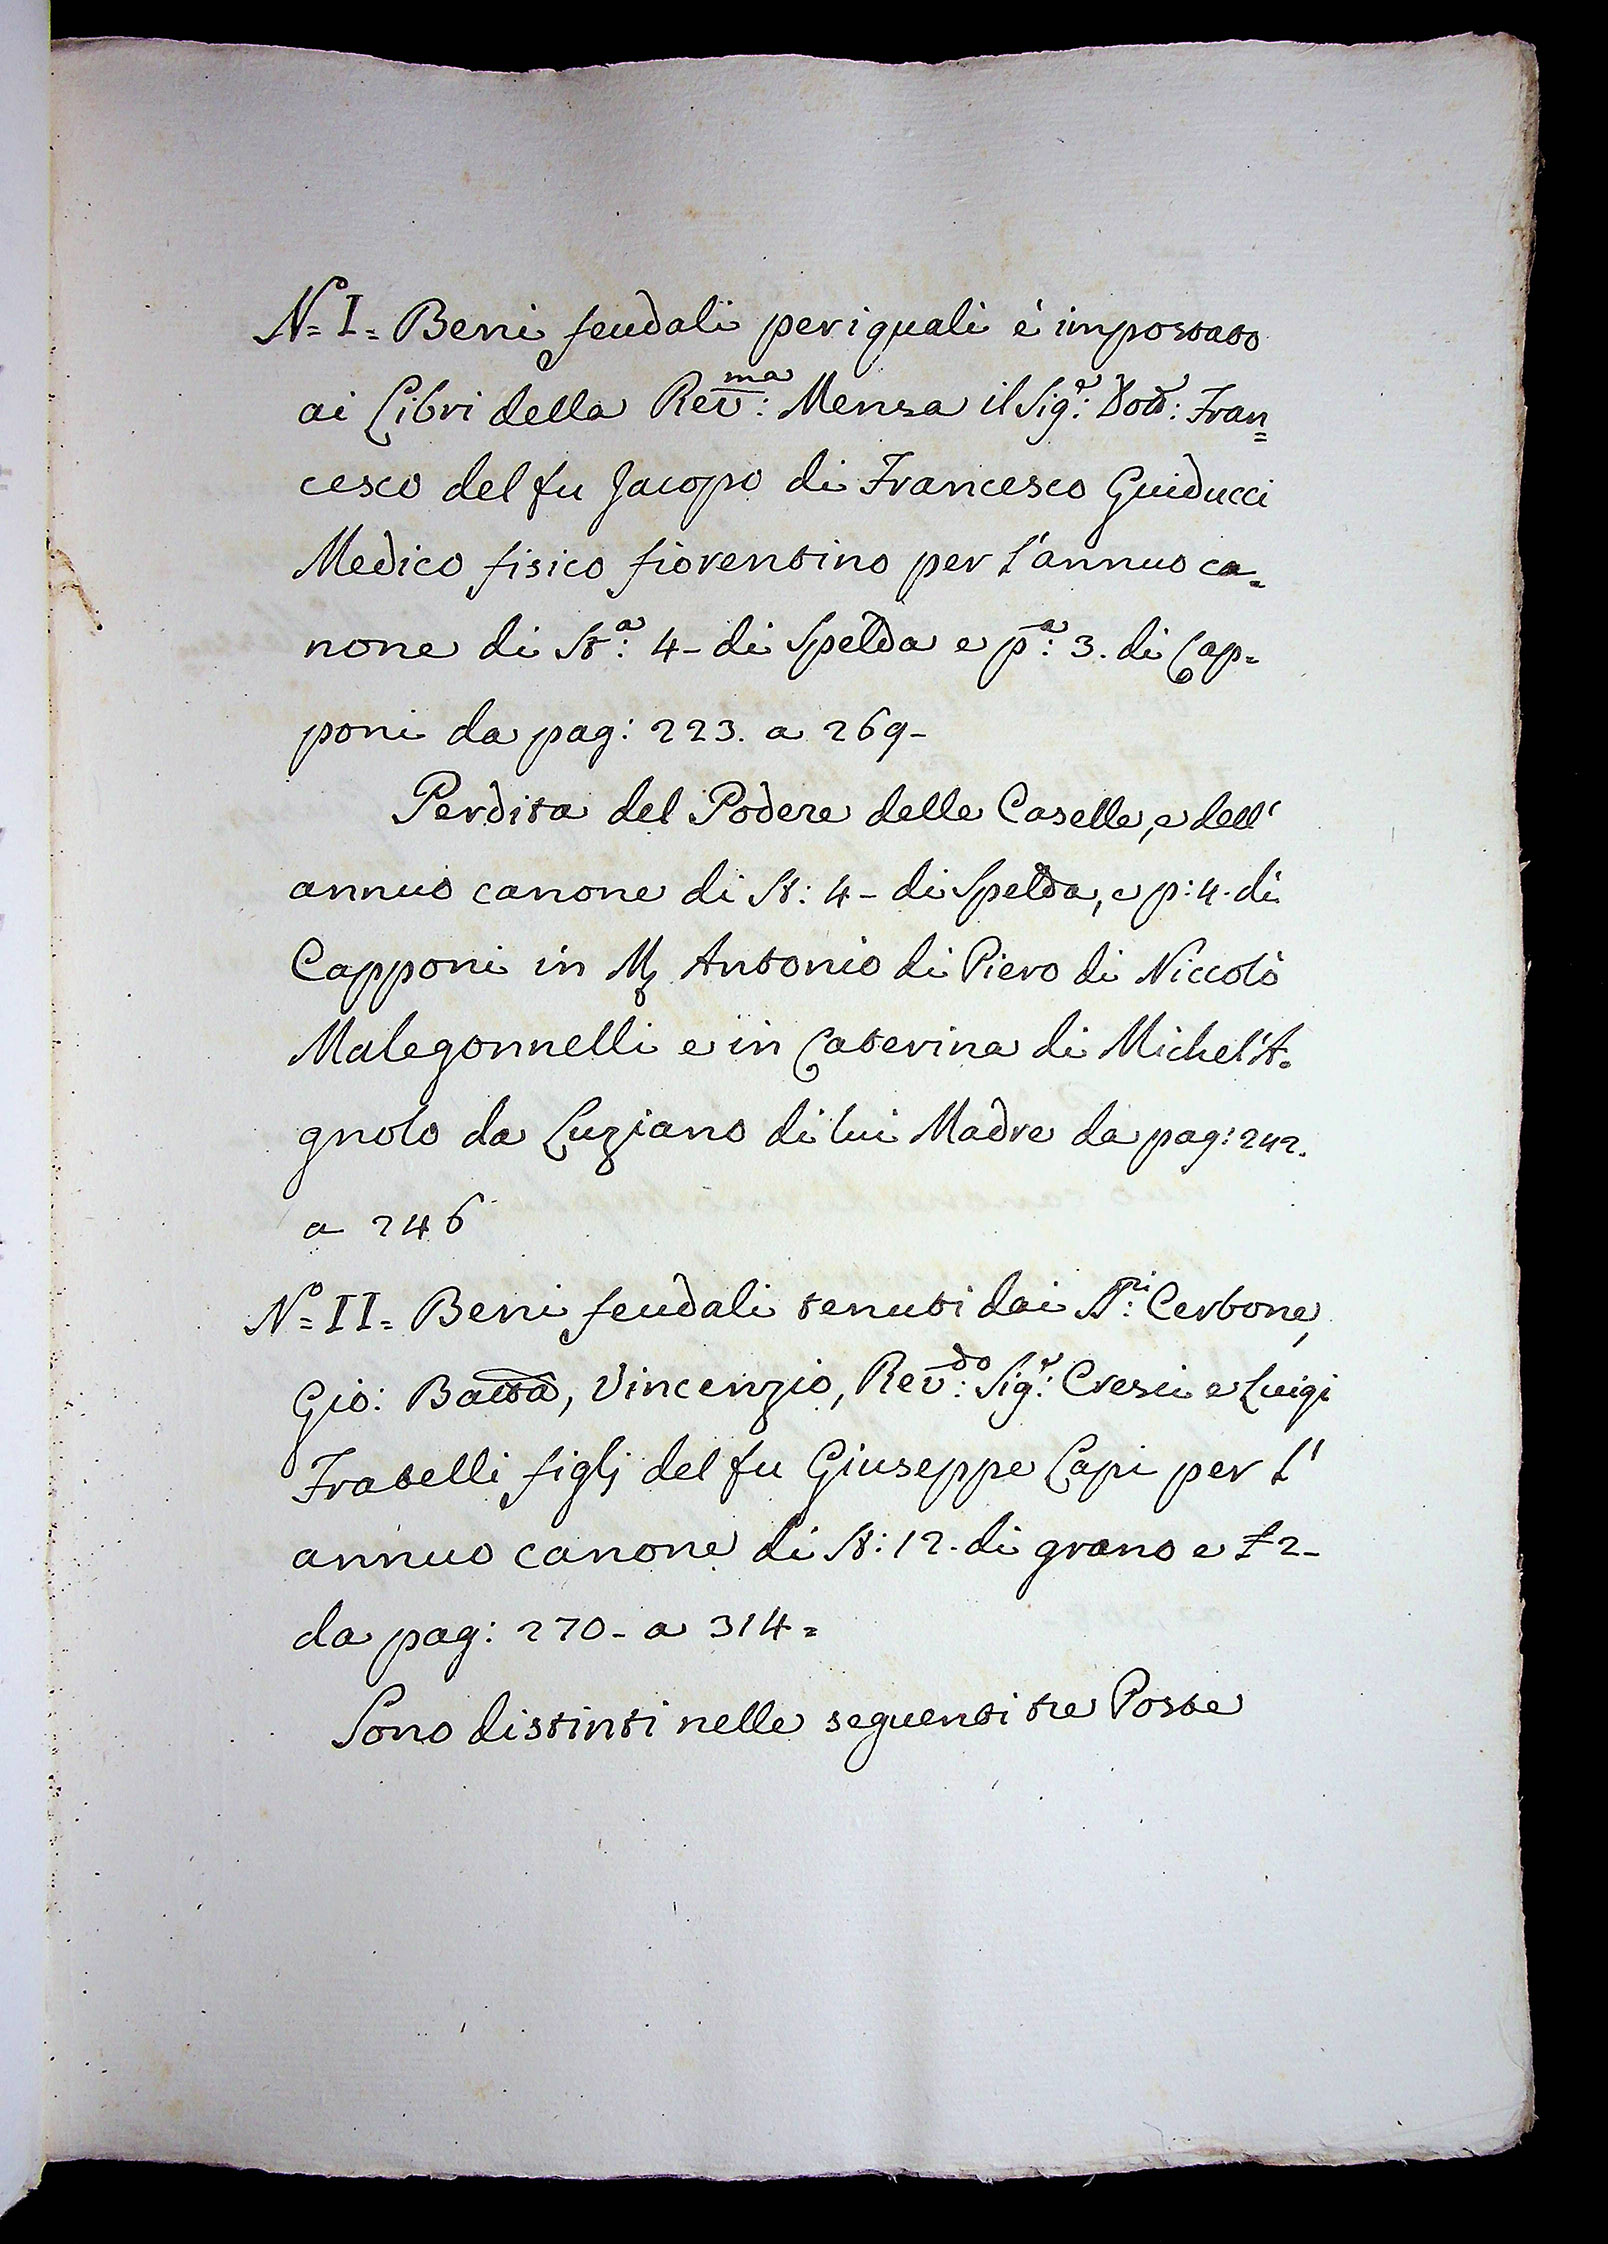 N.º I. Beni feudali per i quali è impostato
ai Libri della Rev:ma Mensa il Sig:r Dott:r Fran=
cesco del fu Jacopo di Francesco Guiducci
Medico fisico fiorentino per l'annuo ca=
none di St:a 4- di Spelda e p:a 3. di Cap=
poni da pag: 223. a 269-
Perdita del Podere delle Caselle, e dell'
annuo canone di St: 4- di Spelda, e p: 4. di
Capponi in Antonio di Piero di Niccolò
Malegonnelli e in Caterina di Michel'A=
gnolo da Luziano di lui Madre da pag: 242.
a 246
N.º II= Beni feudali tenuti dai Cerbone,
Gio: Batta, Vincenzio, Rev:do Sig:r Cresci e Luigi
Fratelli figlj del fu Giuseppe Capi per l'
annuo canone di St: 12. di grano e £ 2-
da pag: 270- a 314=
Sono distinti nelle seguenti tre Poste